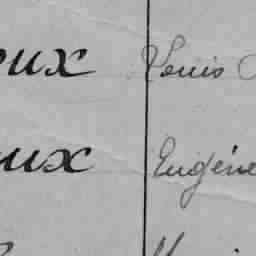 oux Louis
oux Eugène